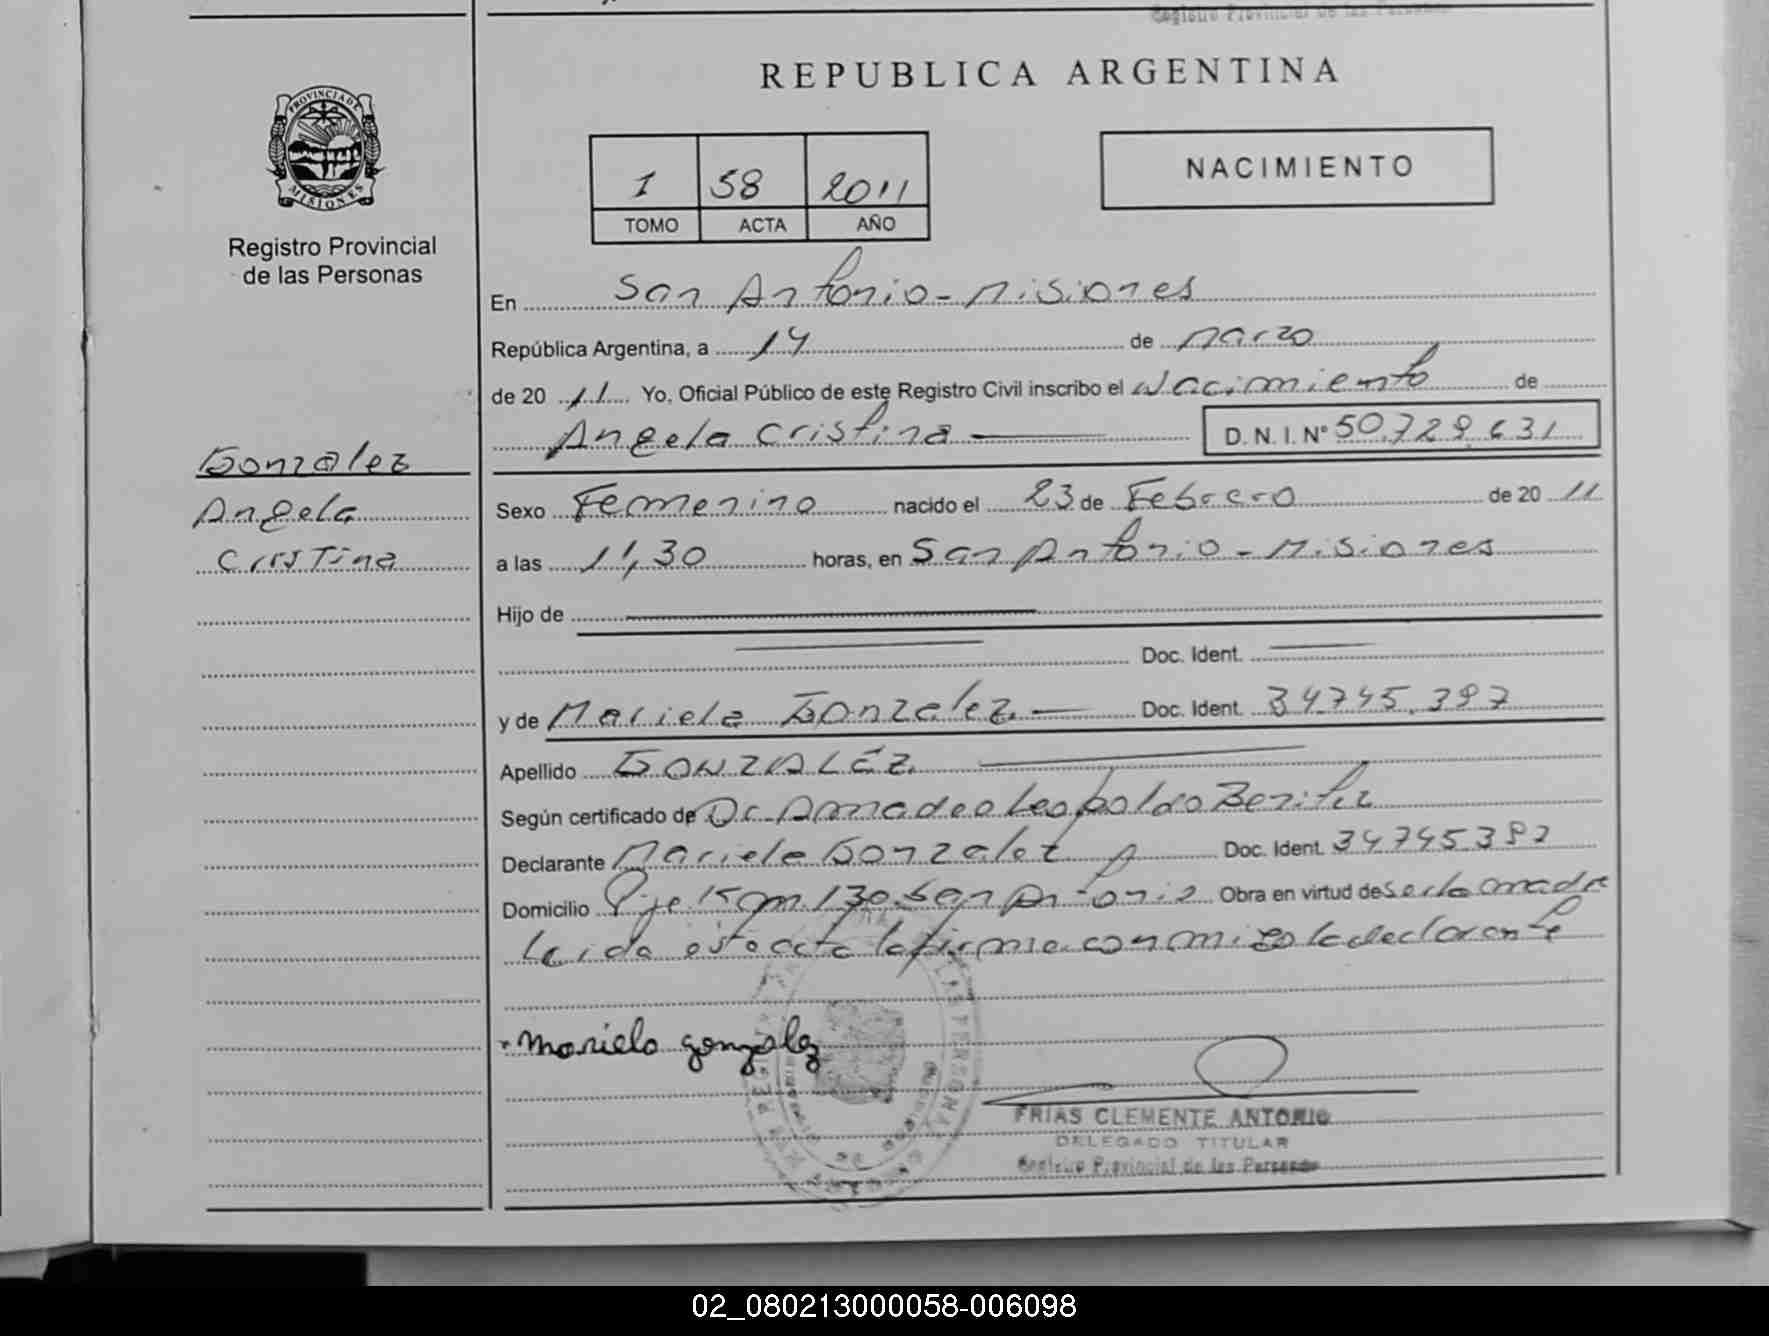 Registro Provincial de las Personas
REPUBLICA ARGENTINA
PROVINCIA DE
MISIONES
Registro Provincial
de las Personas
1 58 2011
TOMO ACTA AÑO
NACIMIENTO
En San Antonio - Misiones
República Argentina, a 14 de Marzo
de 20 11 Yo, Oficial Público de este Registro Civil inscribo el Nacimiento de
Angela Cristina D.N.I.Nº 50.729.631
Gonzalez
Angela
Cristina
Sexo Femenino nacido el 23 de Febrero de 20 11
a las 11,30 horas, en San Antonio - Misiones
Hijo de
Doc. Ident.
y de Mariela Gonzalez Doc. Ident. 34.745.397
Apellido GONZALÉZ
Según certificado de Dr. Amadeo Leopoldo Benitez
Declarante Mariela Gonzalez Doc. Ident. 34745397
Domicilio Pje Km 130 San Antonio Obra en virtud de ser la madre
Leida esta acta la firma con migo la declarante
Mariela gonzalez
FRIAS CLEMENTE ANTONIO
DELEGADO TITULAR
Registro Provincial de las Personas
02_080213000058-006098